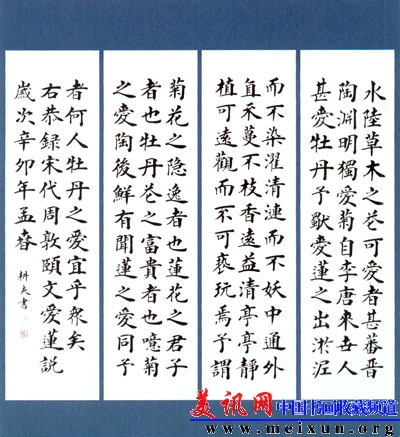 水陸草木之花可愛者甚蕃晋
陶淵明獨愛菊自李唐来世人
甚愛牡丹予獨愛蓮之出淤泥
而不染濯清漣而不妖中通外
直不蔓不枝香遠益清亭亭静
植可遠觀而不可褻玩焉予謂
菊花之隐逸者也蓮花之君子
者也牡丹花之富貴者也噫菊
之愛陶後鮮有聞蓮之愛同予
者何人牡丹之愛宜乎衆矣
右恭録宋代周敦頤文愛蓮説
歲次辛卯年孟春 耕夫書
美讯网 中国书画收藏频道
www.meixun.org